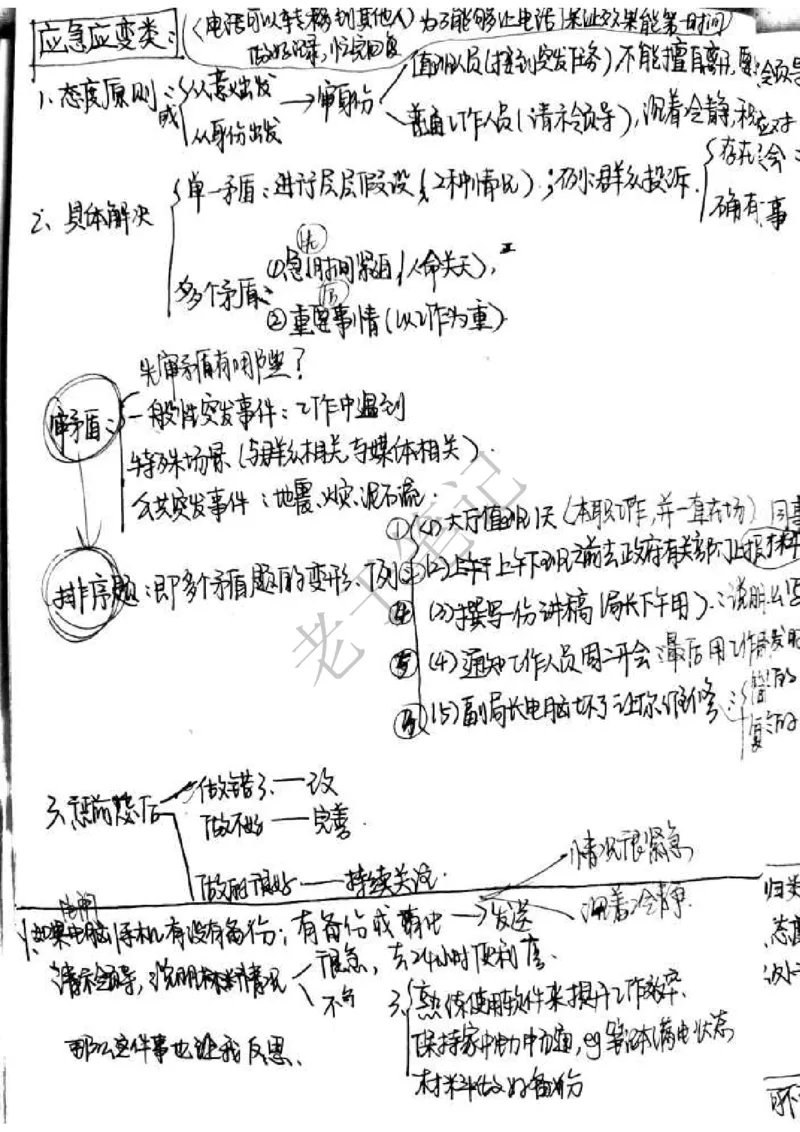 应急应变类：(电话可以转移到其他人) 为了能够让电话 保证效果能第一时间
做好记录，快完回复
1、态度原则：从意义出发 → 审身份 值班人员(接到突发任务) 不能擅自离开,要 领导
或 从身份出发 普通工作人员(请示领导), 沉着冷静,积 应对
2、具体解决 单一矛盾：进行层层假设 (2种情况)；例:群众投诉. 存在 会：
确有事
多个矛盾： ①急(优)时间紧迫 (人命关天),
②重要事情(以工作为重)
审矛盾： 先审矛盾有哪些？
一般性突发事件：工作中遇到
特殊场景 (与群众相关,与媒体相关).
公共突发事件：地震、火灾、泥石流.
排序题：即多个矛盾题的变形. 例
① (1)大厅值班1天 (本职工作,并一直在场) 同事
② (2)上午下班之前去政府有关部门上报材料
④ (3)撰写一份讲稿 (局长下午用).：说明
⑤ (4)通知工作人员周二开会 最后用
③ (5)副局长电脑坏了让你维修：简 的
复 的
3、惩前毖后 做错了——改
做不好——完善.
做的很好——持续关注.
情况很紧急
沉着冷静.
归类
态度
1、如果电脑 手机有没有备份；有备份或 → 发送
请示领导，说明材料情况 很急，去24小时便利店.
不急
3、熟练使用软件来提升工作效率.
保持家中 电力畅通, eg 笔记本满电状态
材料做好备份
那么这件事也让我反思、
老丁笔记